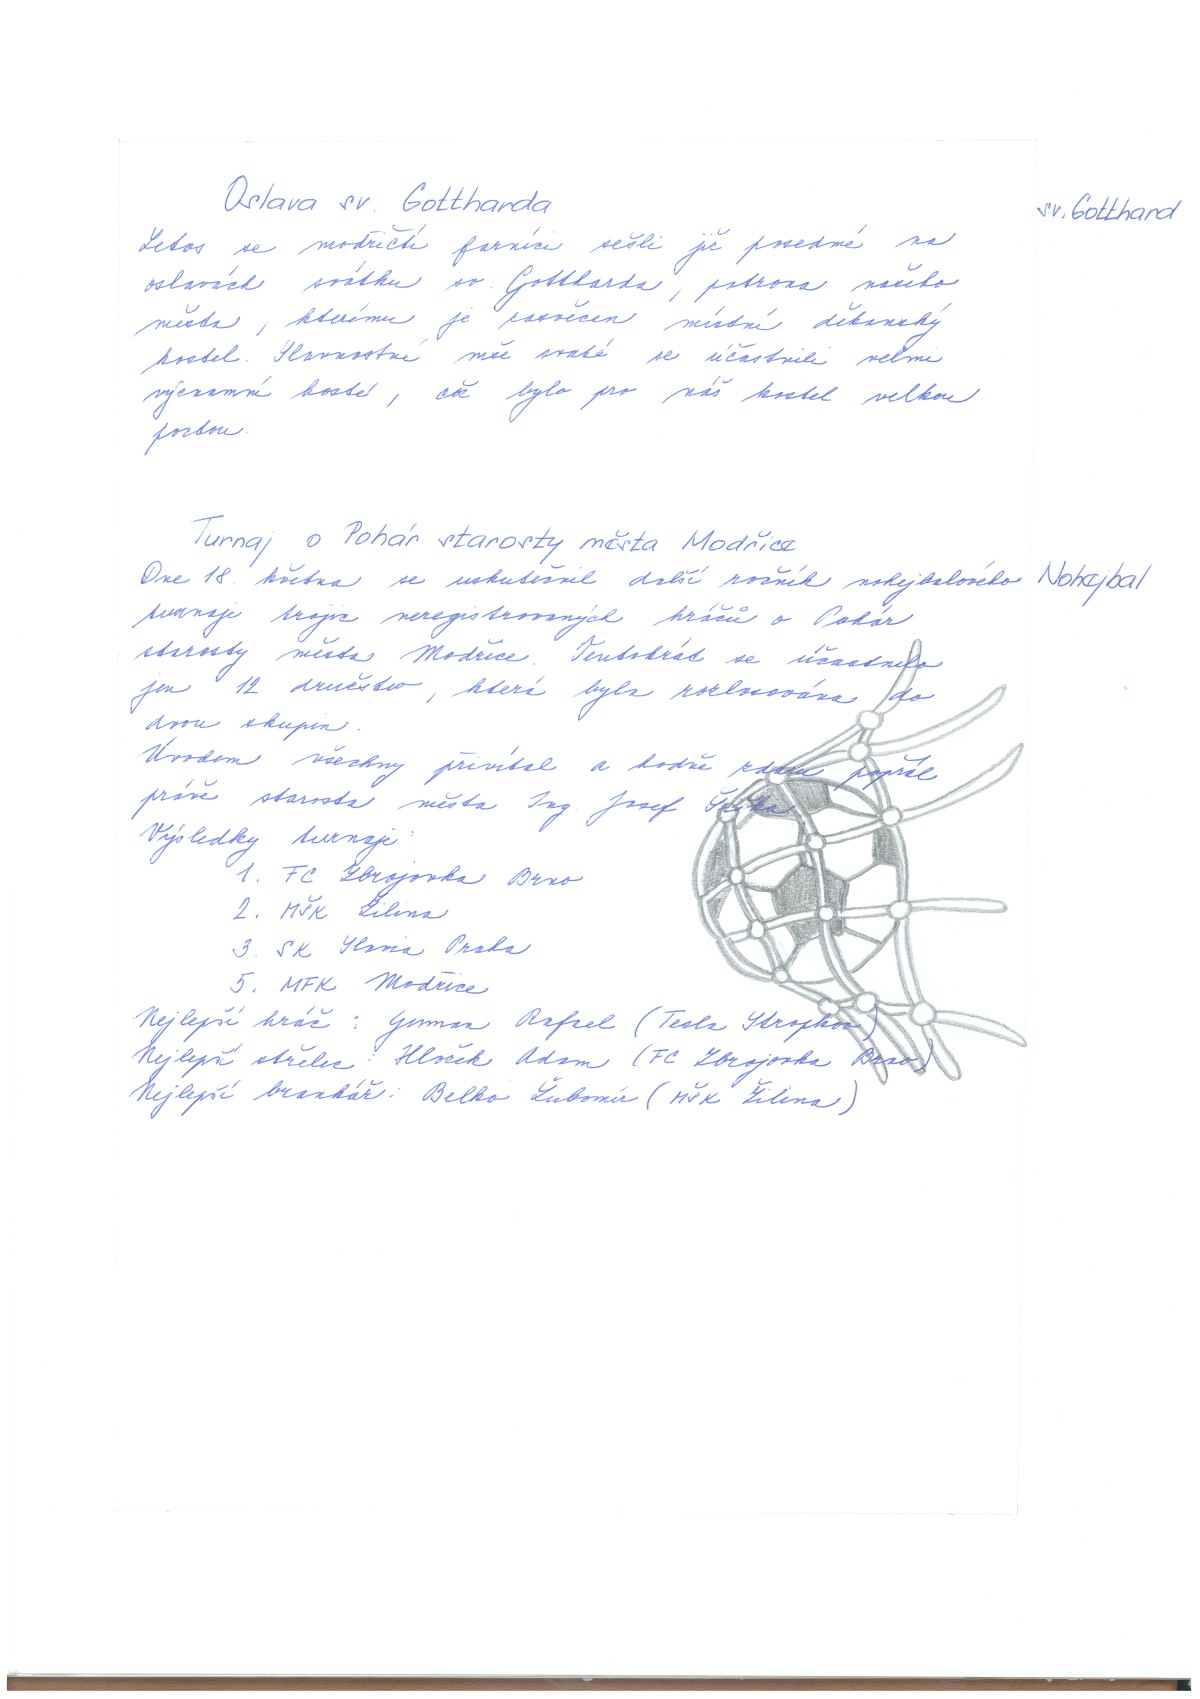 Oslava sv. Gottharda
sv. Gotthard
Letos se modřičtí farníci sešli již posedmé na
oslavách svátku sv. Gottharda, patrona našeho
města, kterému je zasvěcen místní děkanský
kostel. Slavnostní mše svaté se účastnili velmi
významní hosté, což bylo pro náš kostel velkou
poctou.
Turnaj o Pohár starosty města Modřice
Dne 18. května se uskutečnil další ročník nohejbalového
Nohejbal
turnaje trojic neregistrovaných hráčů o Pohár
starosty města Modřice. Tentokrát se účastnilo
jen 12 družstev, která byla rozlosována do
dvou skupin.
Úvodem všechny přivítal a hodně zdaru popřál
právě starosta města Ing. Josef Šiška.
Výsledky turnaje:
1. FC Zbrojovka Brno
2. MŠK Žilina
3. SK Slavia Praha
5. MFK Modřice
Nejlepší hráč: Guman Rafael (Tesla Stropkov)
Nejlepší střelec: Hloček Adam (FC Zbrojovka Brno)
Nejlepší brankář: Belko Ľubomír (MŠK Žilina)